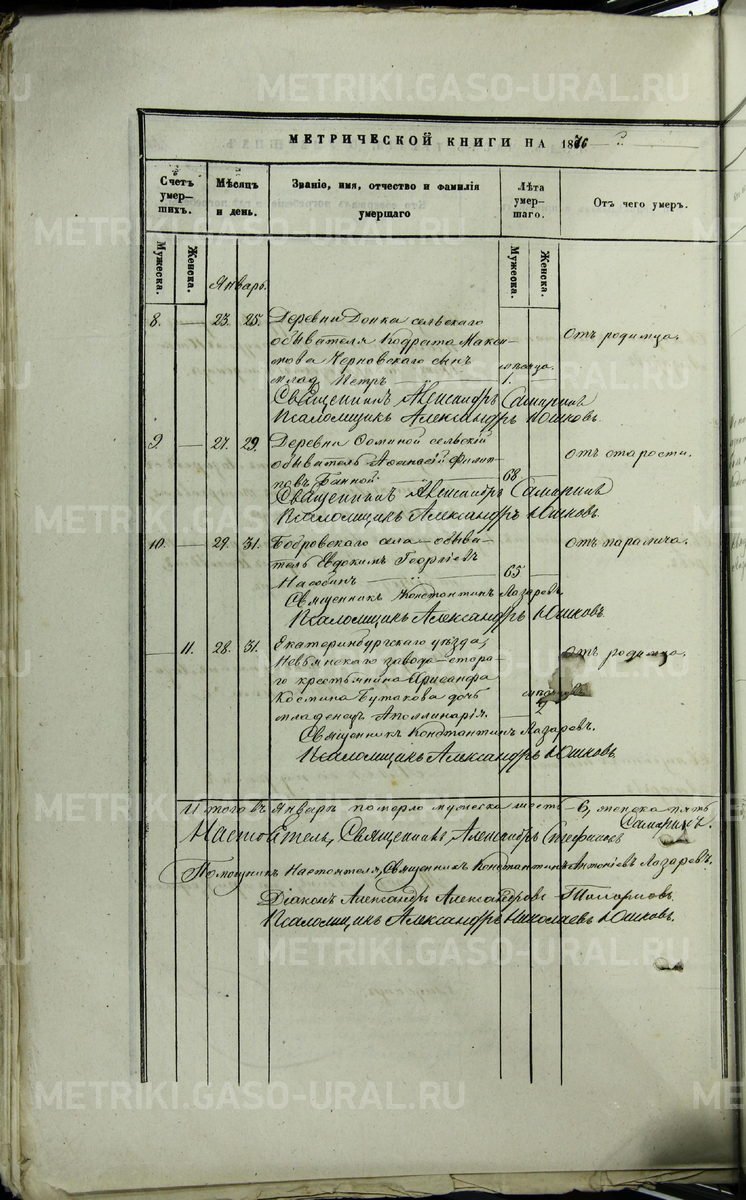 МЕТРИЧЕСКОЙ КНИГИ НА 1876 г.
Счетъ умер-шихъ.
Мѣсяцъ и день.
Званіе, имя, отчество и фамилія умершаго
Лѣта умер-шаго.
Отъ чего умеръ.
Мужеска. Женска.
Мужеска. Женска.
Январь.
8. — 23. 25. Деревни Донка сельскаго
обывателя Кодрата Макси-
мова Черновскаго сынъ
млад. Петръ
мѣсяца. 1.
отъ родимца.
Священникъ Александръ Самаринъ
Псаломщикъ Александръ Юшковъ.
9. — 27. 29. Деревни Ѳоминой сельскій
обыватель Аѳанасій Филип-
повъ Банной.
68
отъ старости.
Священникъ Александръ Самаринъ
Псаломщикъ Александръ Юшковъ.
10. — 29. 31. Бобровскаго села обыва-
тель Евдокимъ Георгіевъ
65
отъ паралича.
Священникъ Константинъ Лазаревъ.
Псаломщикъ Александръ Юшковъ.
— 11. 28. 31. Екатеринбургскаго уѣзда,
Невьянскаго завода
го крестьянина
Космина Бутакова дочь
младенецъ Аполлинарія.
2
отъ родимца.
Священникъ Константинъ Лазаревъ.
Псаломщикъ Александръ Юшковъ.
Итого въ Январѣ померло мужеска шесть – 6, женска пять
Настоятель, Священникъ Александръ Стефановъ Самаринъ.
Помощникъ Настоятеля, Священникъ Константинъ Антоніевъ Лазаревъ.
Діаконъ Александръ Александровъ
Псаломщикъ Александръ Николаевъ Юшковъ.
METRIKI.GASO-URAL.RU